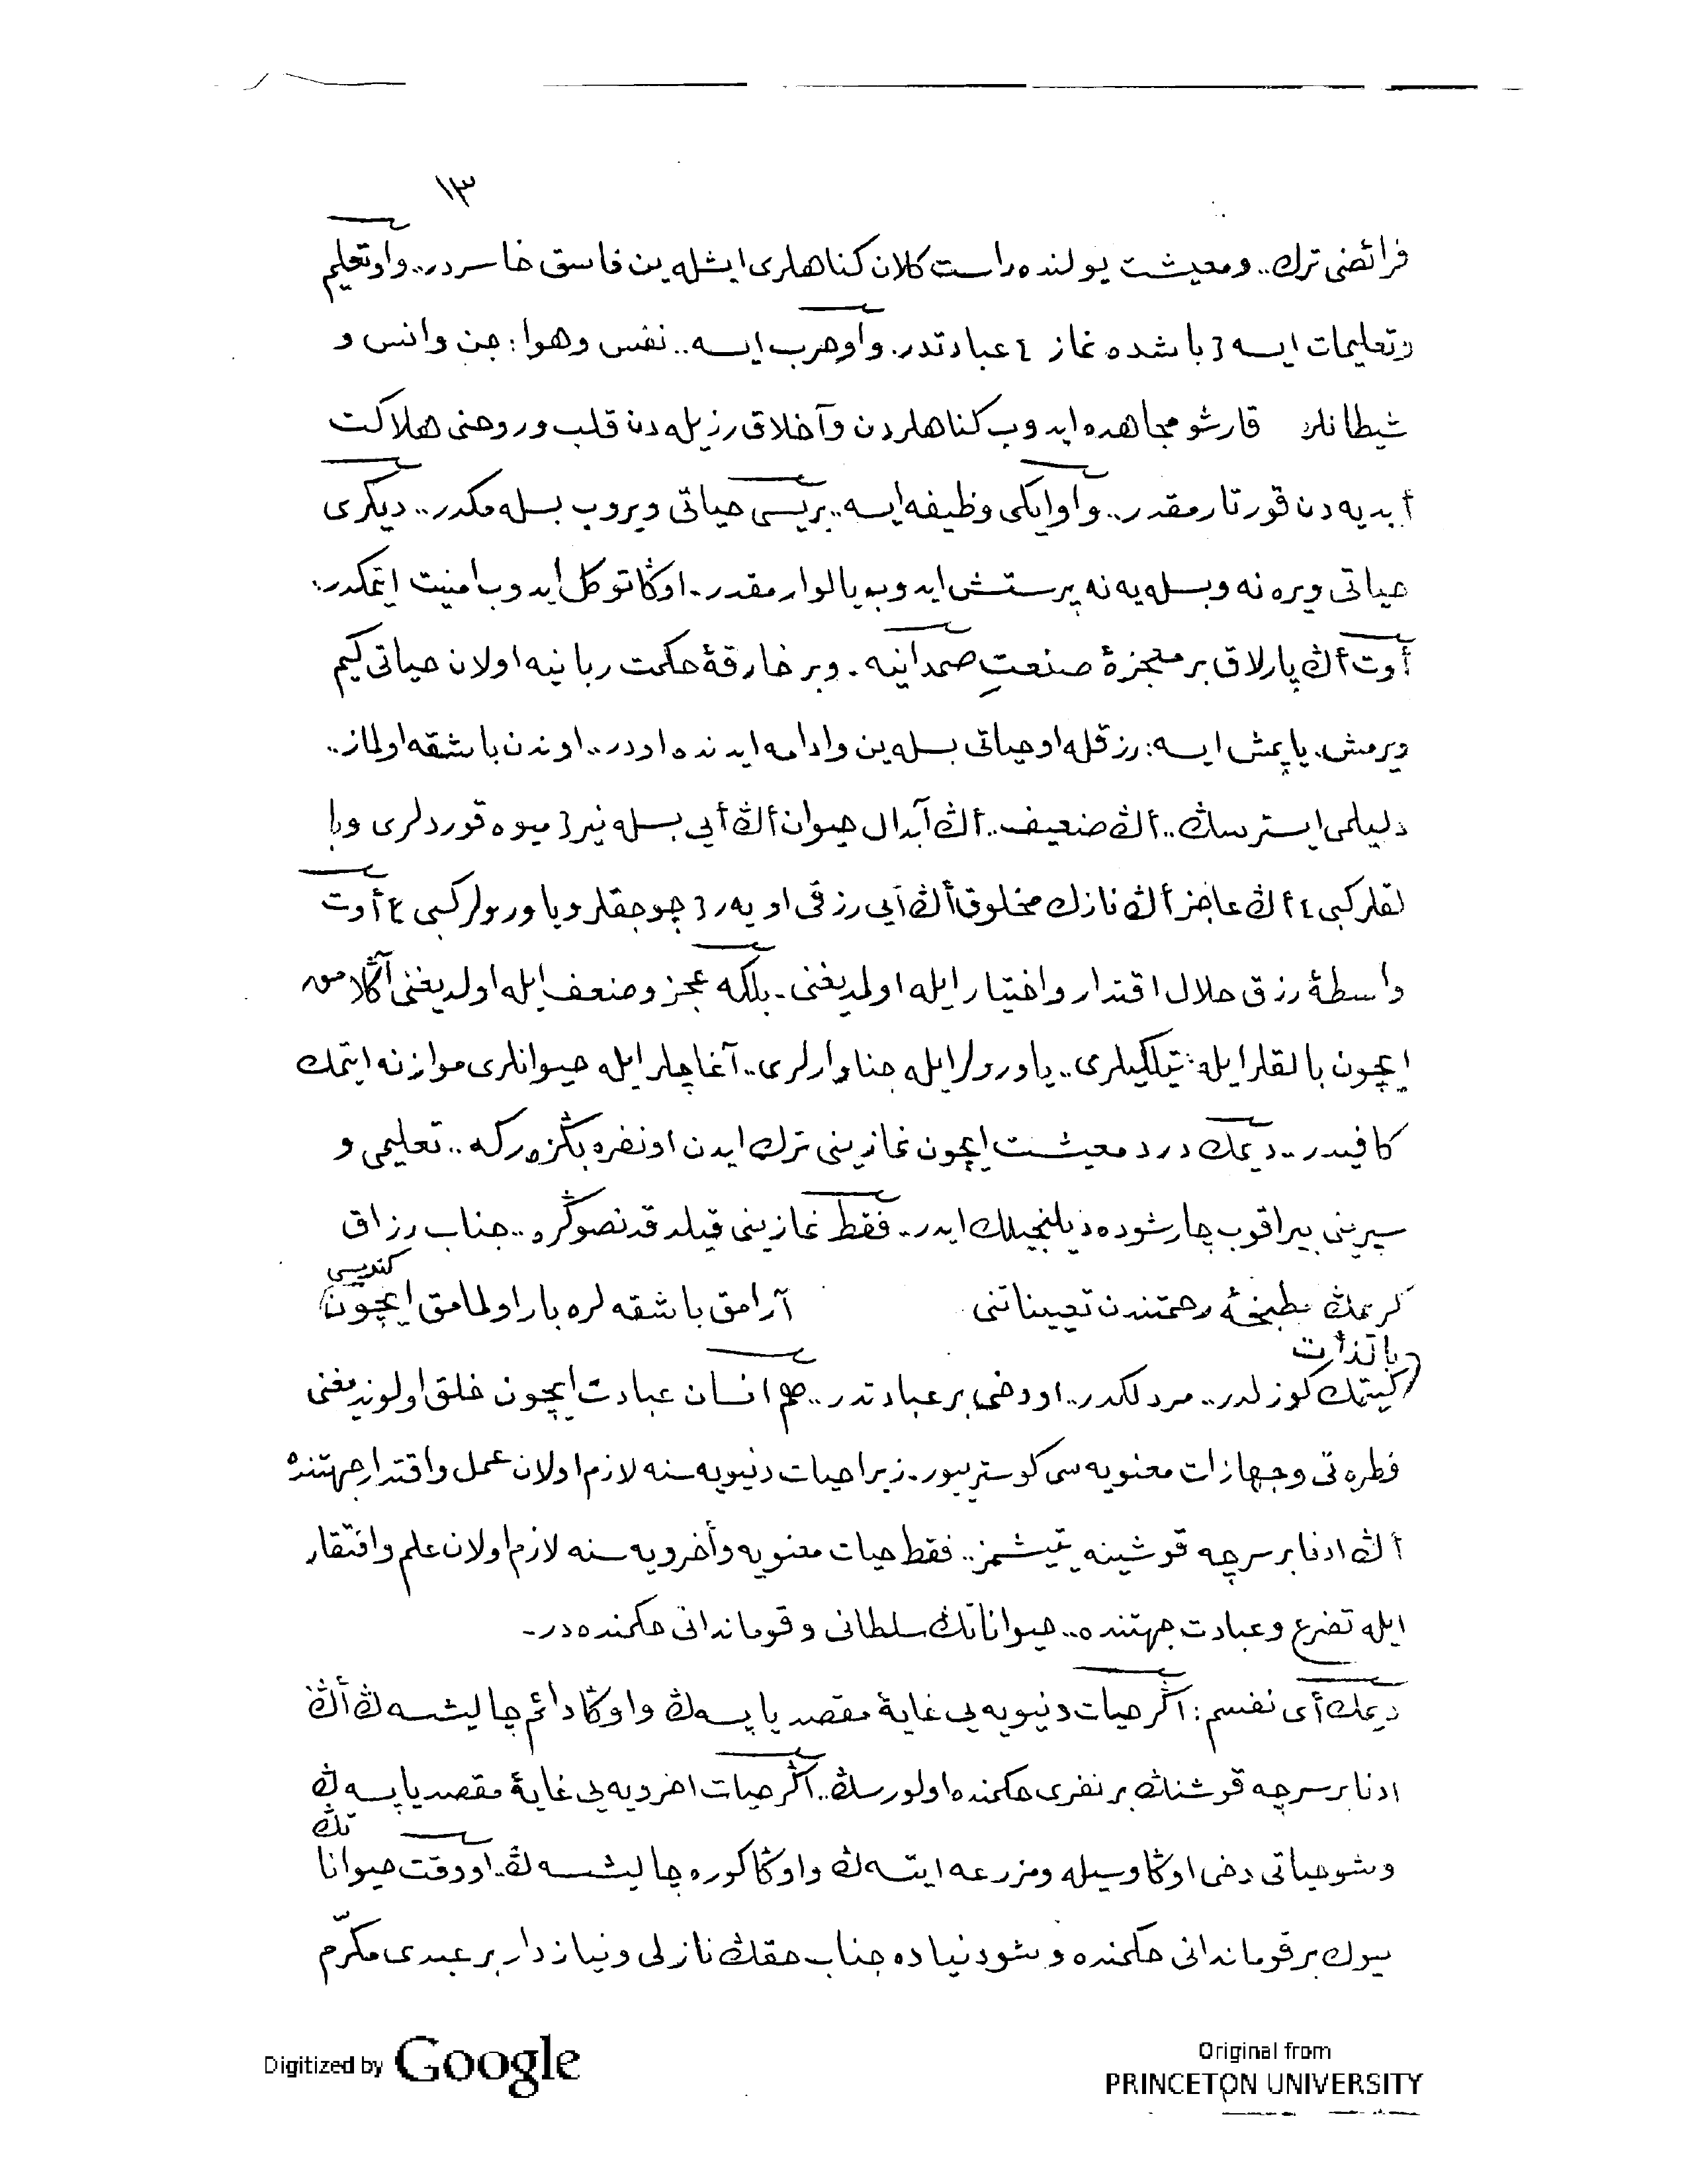 ١٣
فرائضنى ترك.. ومعيشت يولنده راست كلان كناهلرى ايشله‌ين فاسق خاسردر.. واو تعليم
وتعليمات ايسه {باشده نماز} عبادتدر. واو حرب ايسه.. نفس وهوا: جن وانس و
شيطانلره قارشو مجاهده ايدوب كناهلردن وآخلاق رزيله‌دن قلب وروحنى هلاكت
أبديه‌دن قورتارمقدر.. واو ايكى وظيفه ايسه.. بريسى حياتى ويروب بسله‌مكدر.. ديكرى
حياتى ويره‌نه وبسله‌يه‌نه پرستش ايدوب يالوارمقدر. اوڭا توكل ايدوب امنيت ايتمكدر.
أوت أڭ پارلاق بر معجزۀ صنعتِ صمدانيه. وبر خارقۀ حكمت ربانيه اولان حياتى كيم
ويرمش. ياپمش ايسه: رزقله او حياتى بسله‌ين وادامه ايدنده اودر.. اوندن باشقه اولماز..
دليلمى ايسترسڭ.. أڭ ضعيف.. أڭ آبدال حيوان أڭ أيى بسله‌نير {ميوه قوردلرى وبا
لقلر كبى} أڭ عاجز أڭ نازك مخلوق أڭ أيى رزقى او يه‌ر {چوجقلر وياورولر كبى} أوت
واسطۀ رزق حلال اقتدار واختيار ايله اولمديغنى. بلكه عجز وضعف ايله اولديغنى آڭلامق
ايچون بالقلر ايله: تيلكيلرى.. ياورولر ايله جناوارلرى.. آغاچلر ايله حيوانلرى موازنه ايتمك
كافيدر.. ديمك درد معيشت ايچون نمازينى ترك ايدن او نفره بڭزركه.. تعليمى و
سيرينى بيراقوب چارشوده ديلنجيلك ايدر. فقط نمازينى قيلدقدنصوڭره.. جناب رزاق
كريمڭ مطبخۀ رحمتندن تعييناتنى آرامق باشقه‌لره بار اولمامق ايچون كنديسى
بالذات
كيتمك كوزلدر.. مردلكدر.. اودخى بر عبادتدر.. هم انسان عبادت ايچون خلق اولونديغنى
فطره‌تى وجهازات معنويه‌سى كوستريیور. زيرا حيات دنيويه‌سنه لازم اولان عمل واقتدار جهتنده
أڭ ادنا بر سرچه قوشينه يتيشمز.. فقط حيات معنويه وأخرويه‌سنه لازم اولان علم وافتقار
ايله تضرع وعبادت جهتنده.. حيواناتڭ سلطانى وقوماندانى حكمنده‌در.
ديمك أى نفسم: اڭر حيات دنيويه‌يى غايۀ مقصد ياپسه‌ڭ واوڭا دائم چاليشسه‌ڭ أڭ
ادنا بر سرچه قوشنڭ بر نفرى حكمنده اولورسڭ.. اڭر حيات اخرويه‌يى غايۀ مقصد ياپسه‌ڭ
وشو حياتى دخى اوڭا وسيله ومزرعه ايتسه‌ڭ واوڭا كوره چاليشسه‌ڭ. او وقت حيواناتڭ
بيوك بر قوماندانى حكمنده وشو دنياده جناب حقڭ نازلى ونيازدار بر عبدى مكرّم
Digitized by Google
Original from
PRINCETON UNIVERSITY